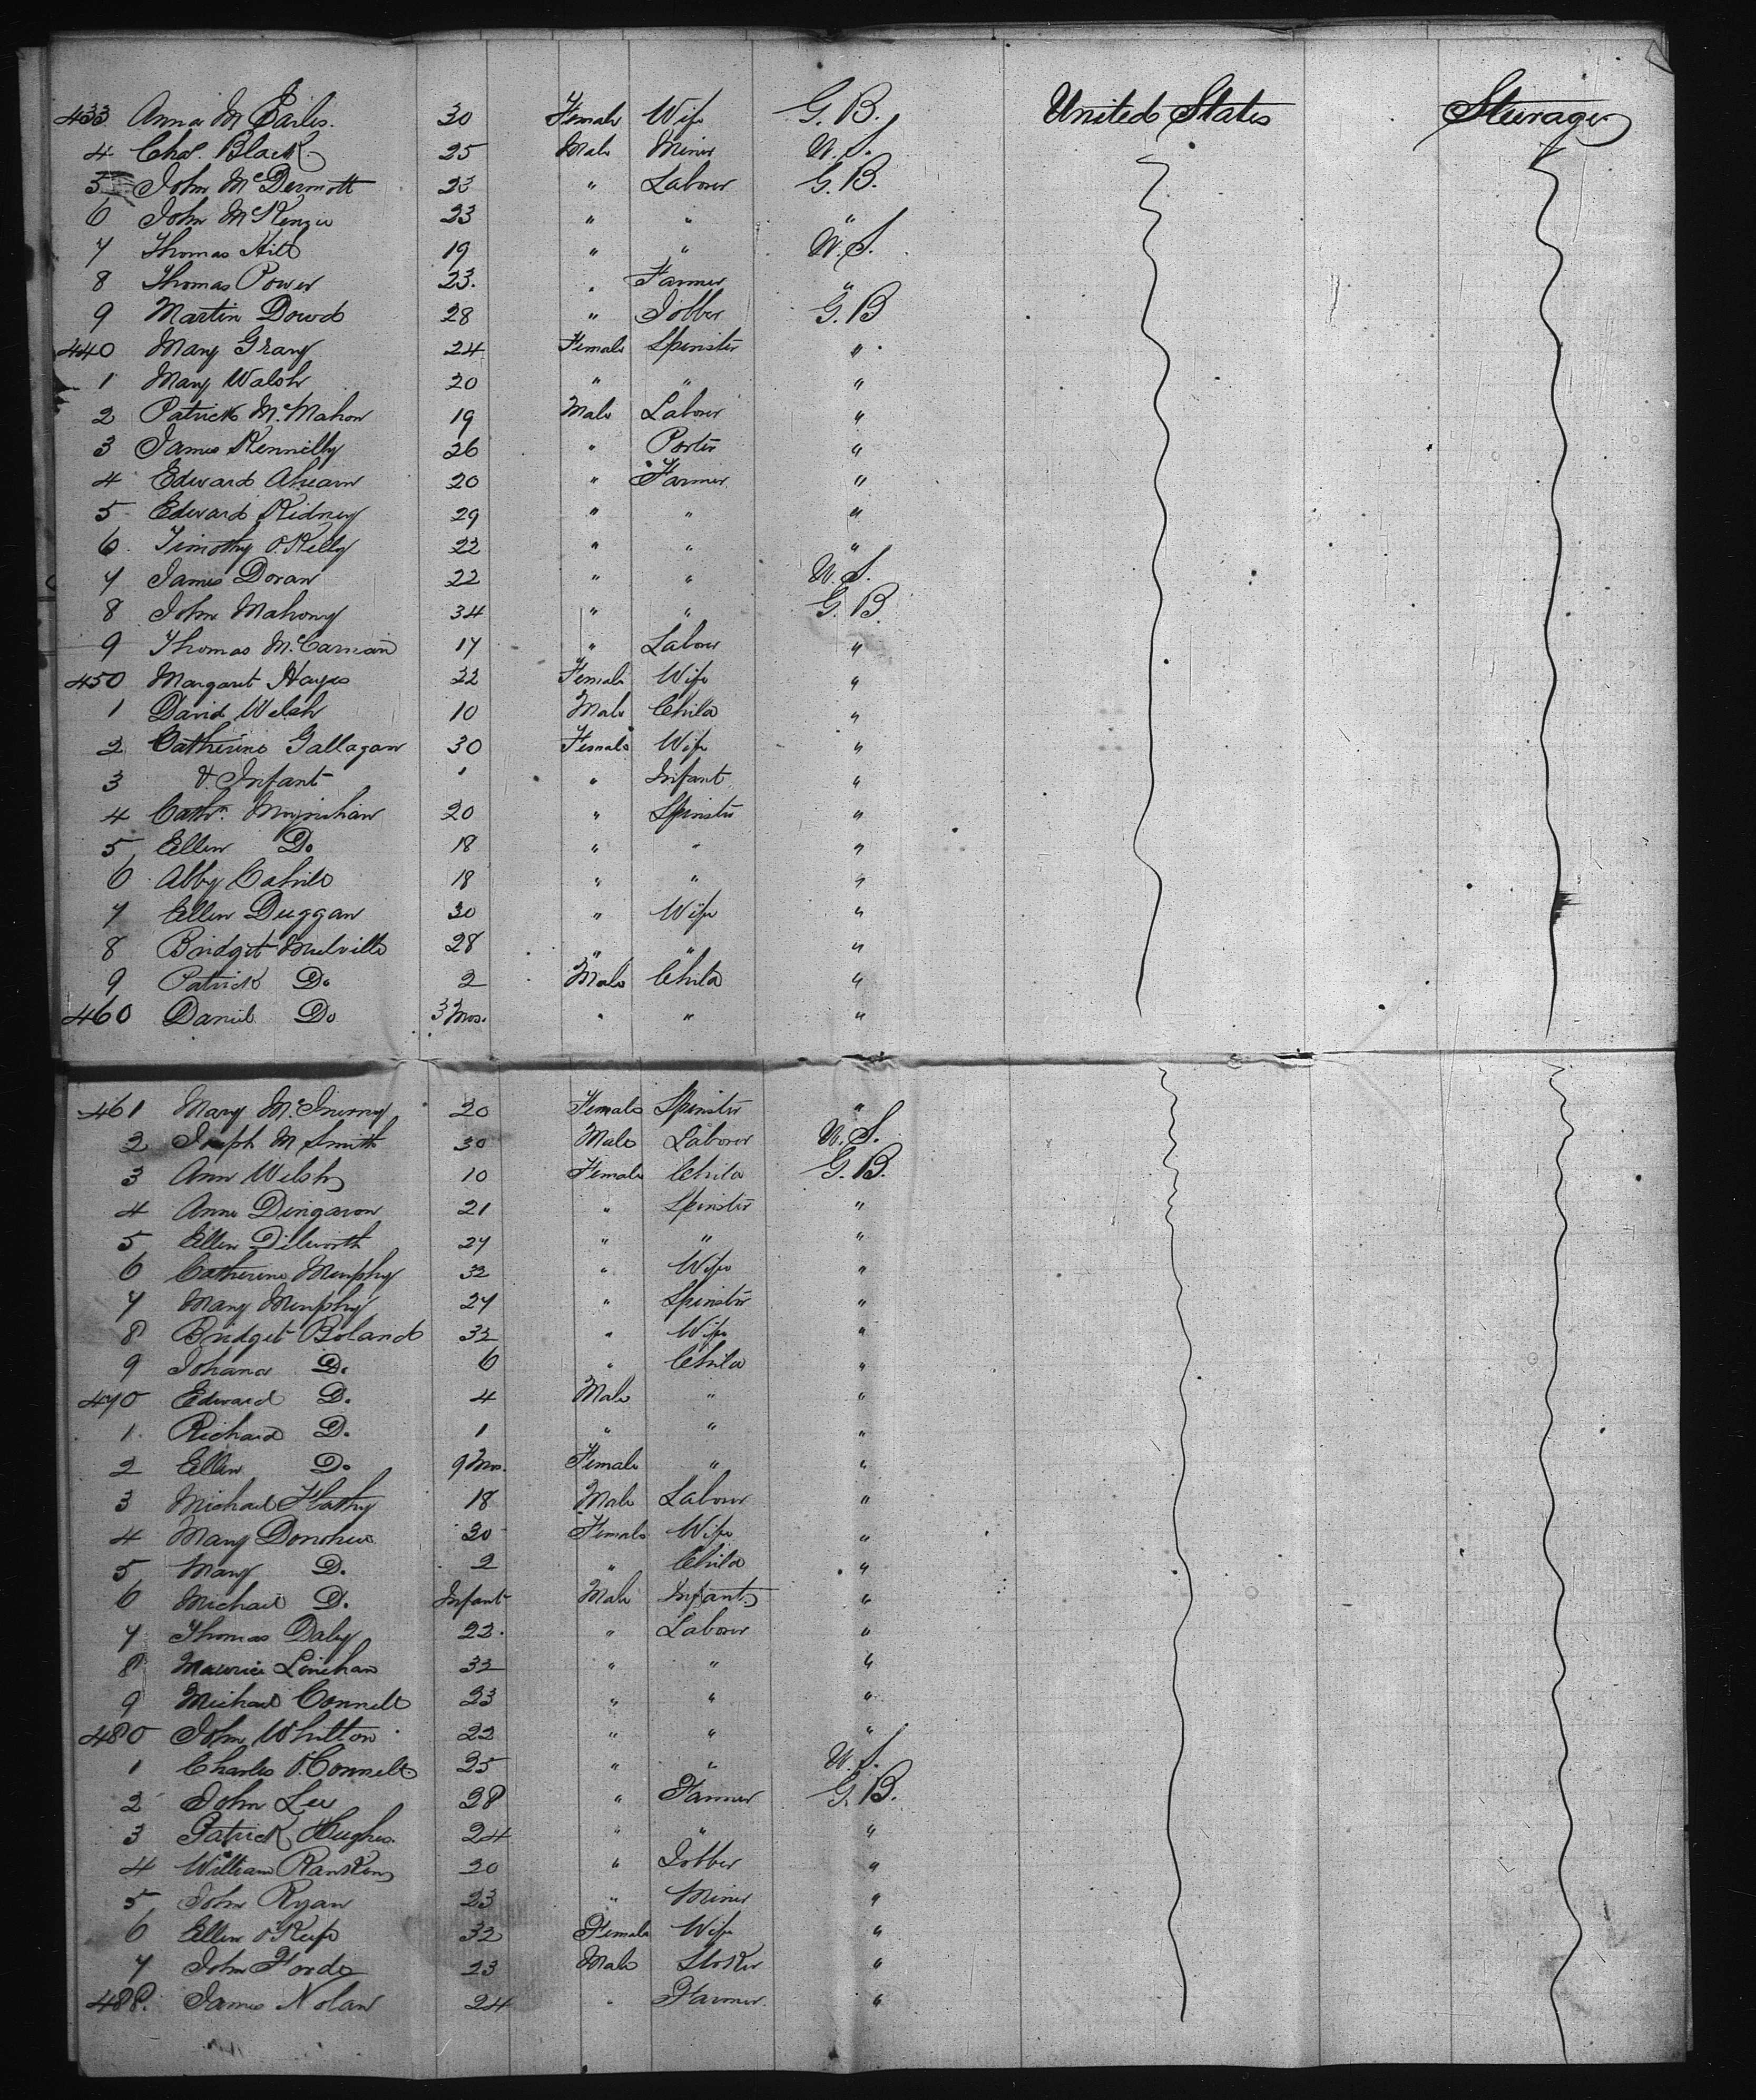 433 Anna M Earles. 30 Female Wife G. B. United States Steerage
4 Chas. Black 25 Male Miner U. S.
5 John McDermott 23 " Laborer G. B.
6 John McKenzie 23 " " "
7 Thomas Hill 19 " " U. S.
8 Thomas Power 23. " Farmer "
9 Martin Dowd 28 " Jobber G. B
440 Mary Grany 24 Female Spinster "
1 Mary Walsh 20 " " "
2 Patrick McMahon 19 Male Laborer "
3 James Kennelly 26 " Porter "
4 Edward Ahearn 20 " Farmer "
5 Edward Kidney 29 " " "
6. Timothy O.Kelly 22 " " "
7 James Doran 22 " " U. S.
8 John Mahony 34 " " G. B.
9 Thomas McCarnan 17 " Laborer "
450 Margaret Hayes 32 Female Wife "
1 David Welsh 10 Male Child "
2 Catherine Gallagan 30 Female Wife "
3 & Infant " Infant "
4 Cathn. Moynihan 20 " Spinster "
5 Ellen Do 18 " " "
6 Abby Cahill 18 " " "
7 Ellen Duggan 30 " Wife "
8 Bridget Melville 28 " " "
9 Patrick Do 2 Male Child "
460 Daniel Do 3 Mos. " " "
461 Mary McInerny 20 Female Spinster "
2 Joseph M Smith 30 Male Laborer U. S.
3 Ann Welsh 10 Female Child G. B.
4 Anne Dingavon 21 " Spinster "
5 Ellen Dilworth 27 " " "
6 Catherine Murphy 32 " Wife "
7 Mary Murphy 27 " Spinster "
8 Bridget Boland 32 " Wife "
9 Johana Do 6 " Child "
470 Edward Do 4 Male " "
1. Richard Do 1 " " "
2 Ellen Do 9 Mos. Female " "
3 Michael Flathy 18 Male Laborer "
4 Mary Donohue 30 Female Wife "
5 Mary Do 2 " Child "
6 Michael Do Infant Male Infant "
7 Thomas Daly 23. " Laborer "
8 Maurice Linehan 32 " " "
9 Michael Connell 23 " " "
480 John Whitton 22 " " "
1 Charles O.Connell 25 " " U. S.
2 John Lee 28 " Farmer G. B.
3 Patrick Hughes. 24 " " "
4 William Ranskin 20 " Jobber "
5 John Ryan 23 " Miner "
6 Ellen O'Keefe 32 Female Wife "
7 John Forde 23 Male Stoker "
488. James Nolan 24 " Farmer. "